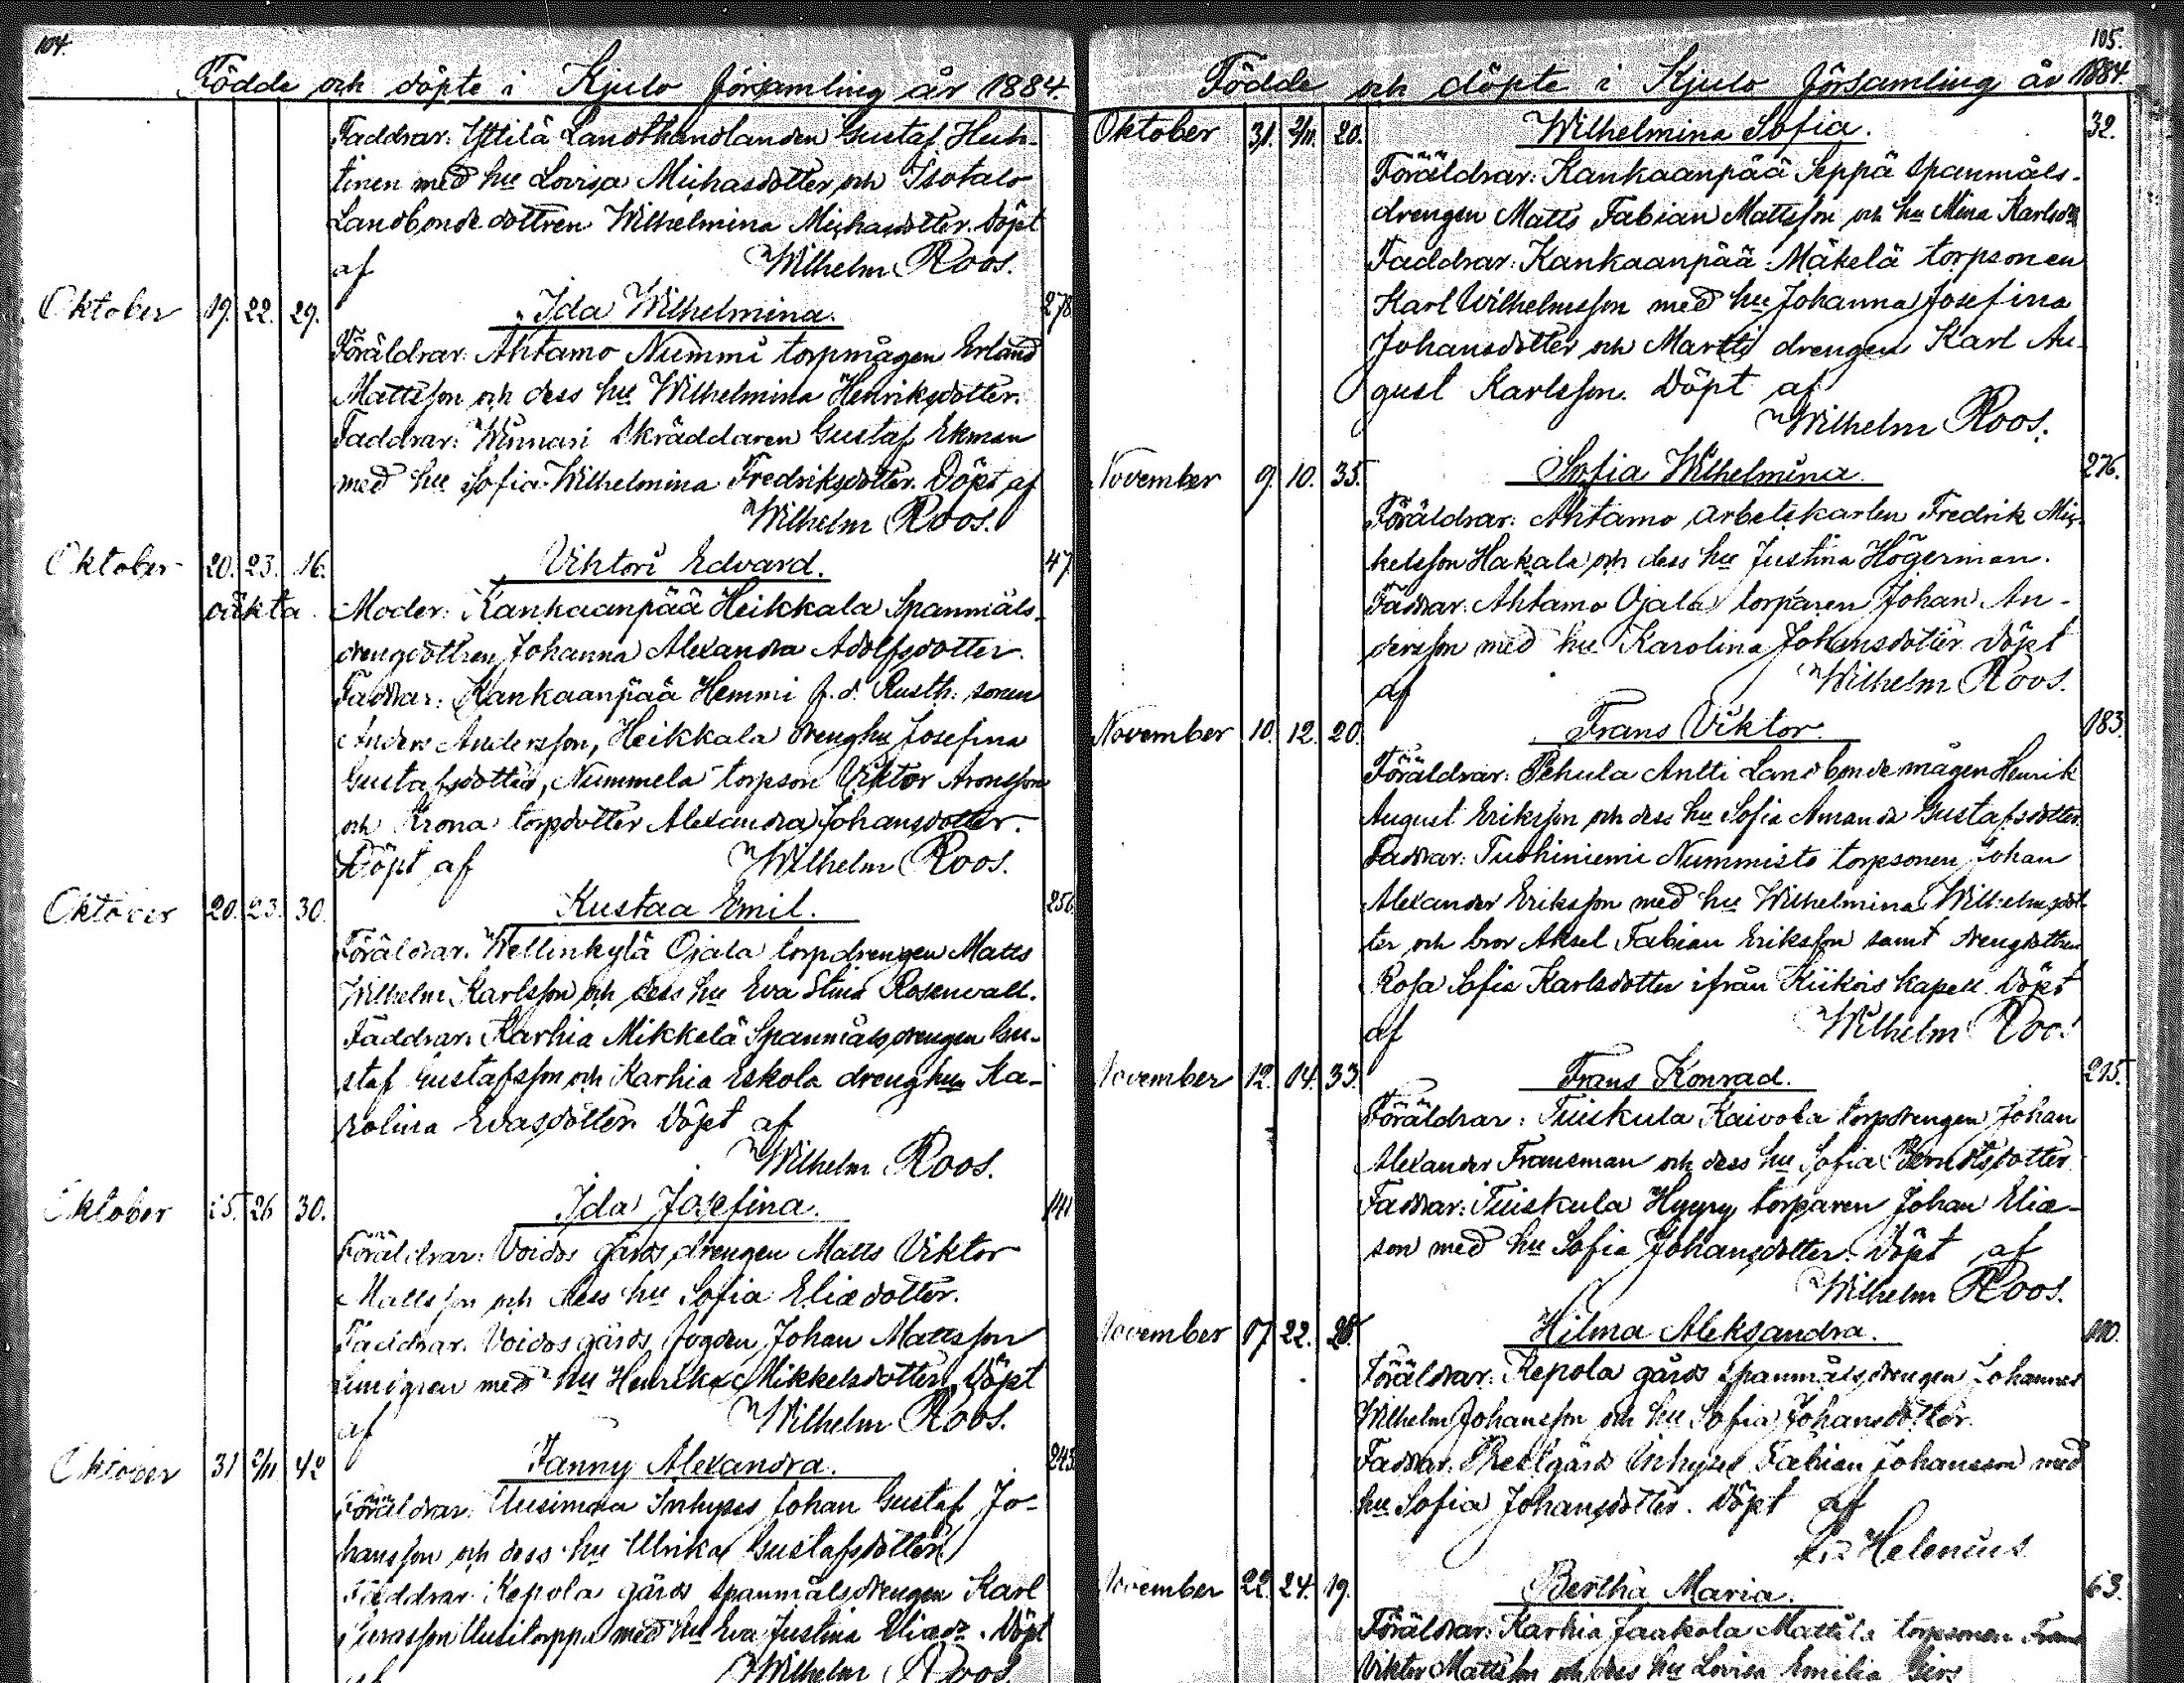 104.
Födde och döpte i Kjulo församling år 1884.
Faddrar: Yttilä Landthandlanden Gustaf Huh-
tinen med hu Lovisa Michasdotter och Isotalo
Landbondedottren Wilhelmina Michasdotter. Döpt
af Wilhelm Roos.
Oktober 19. 22. 29. Ida Wilhelmina. 278
Föräldrar: Ahtamo Nummi torpmågen Erland
Mattsson och dess hu Wilhelmina Henriksdotter.
Faddrar: Winnari Skräddaren Gustaf Ekman
med hu Sofia Wilhelmina Fredriksdotter. Döpt af
Wilhelm Roos.
Oktober 20. 23. 16. Vihtori Edvard. 47
oäkta. Moder: Kankaanpää Heikkala Spanmåls-
drengdottren Johanna Alexandra Adolfsdotter.
Faddrar: Kankaanpää Hemmi f.d. Rusth. sonen
Anders Andersson, Heikkala drenghu Josefina
Gustafsdotter, Nummela torpson Viktor Aronsson
och Krona torpdotter Alexandra Johansdotter.
Döpt af Wilhelm Roos.
Oktober 20. 23. 30. Kustaa Emil. 256
Föräldrar. Wellinkylä Ojala torpdrengen Matts
Wilhelm Karlsson och dess hu Eva Stina Rosenvall.
Faddrar: Karhia Mikkelä Spanmålsdrengen Gu-
staf Gustafsson och Karhia Eskola drenghu Ka-
rolina Evasdotter. Döpt af
Wilhelm Roos.
Oktober 25. 26 30. Ida Josefina. 141
Föräldrar: Voidos gårds drengen Matts Viktor
Mattsson och dess hu Sofia Eliædotter.
Faddrar. Voidos gårds fogden Johan Mattsson
med hu Henrika Mikkelsdotter. Döpt
af Wilhelm Roos.
Oktober 31 2/11 42 Fanny Alexandra. 243
Föräldrar: Uusimaa Inhyses Johan Gustaf Jo-
hansson och dess hu Ulrika Gustafsdotter
Faddrar. Kepola gårds spanmålsdrengen Karl
Uusitorppa med hu Eva Justina Eliædr. Döpt
af Wilhelm Roos.
105.
Födde och döpte i Kjulo församling år 1884.
Oktober 31. 2/11. 20. Wilhelmina Sofia. 32.
Föräldrar: Kankaanpää Seppä spanmåls-
drengen Matts Fabian Mattsson och hu Mina Karlsdr
Faddrar: Kankaanpää Mäkelä torpsonen
Karl Wilhelmsson med hu Johanna Josefina
Johansdotter och Martti drengen Karl Au-
gust Karlsson. Döpt af
Wilhelm Roos.
November 9. 10. 35. Sofia Wilhelmina. 276.
Föräldrar: Ahtamo arbetskarlen Fredrik Mic-
kelsson Hakala och dess hu Justina Högerman.
Faddrar: Ahtamo Ojala torparen Johan An-
dersson med hu Karolina Johansdotter Döpt
af Wilhelm Roos.
November 10. 12. 20. Frans Viktor. 183
Föräldrar: Pehula Antti Landbondemågen Henrik
August Eriksson och dess hu Sofia Amanda Gustafsdotter.
Faddrar: Tuohiniemi Nummisto torpsonen Johan
Alexander Eriksson med hu Wilhelmina Wilhelmsdot-
ter och bror Aksel Fabian Eriksson samt drengdottren
Rosa Sofia Karlsdotter ifrån Kiikois kapell. Döpt
af Wilhelm Roos.
November 12. 14. 33. Frans Konrad. 215.
Föräldrar: Tuiskula Kaivola torpdrengen Johan
Alexander Fransman och dess hu Sofia Berndtsdotter
Faddrar: Tuiskula Hyyry torparen Johan Eliæ-
son med hu Sofia Johansdotter. Döpt af
Wilhelm Roos.
November 17. 22. 28. Hilma Aleksandra. 110.
Föräldrar: Kepola gårds spanmålsdrengen Johannes
Wilhelm Johansson och hu Sofia Johansdotter.
Faddrar: Prestgårds Inhyses Fabian Johansson med
hu Sofia Johansdotter. Döpt af
Helenius
November 22. 24. 19. Bertha Maria. 63.
Föräldrar: Karhia Jaakola Mattila torpsonen Frans
Viktor Mattsson och dess hu Lovisa Emilia